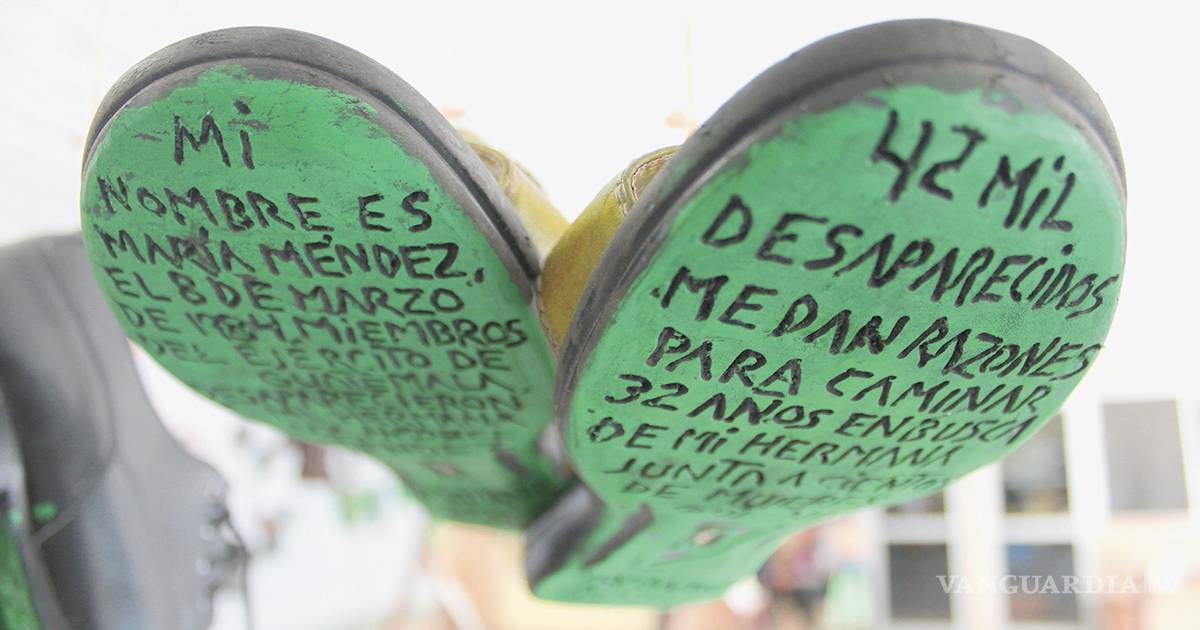 Mi
NOMBRE ES
MARÍA MÉNDEZ.
EL 8 DE MARZO
DE 1984, MiEMBROS
DEL EJÉRCITO DE
GUATEMALA
DESAPARECIERON
42 MiL
DESAPARECIDOS
ME DAN RAZONES
PARA CAMINAR
32 AÑOS EN BUSCA
DE Mi HERMANA
JUNTA A CIENTOS
DE
VANGUARDIA MX